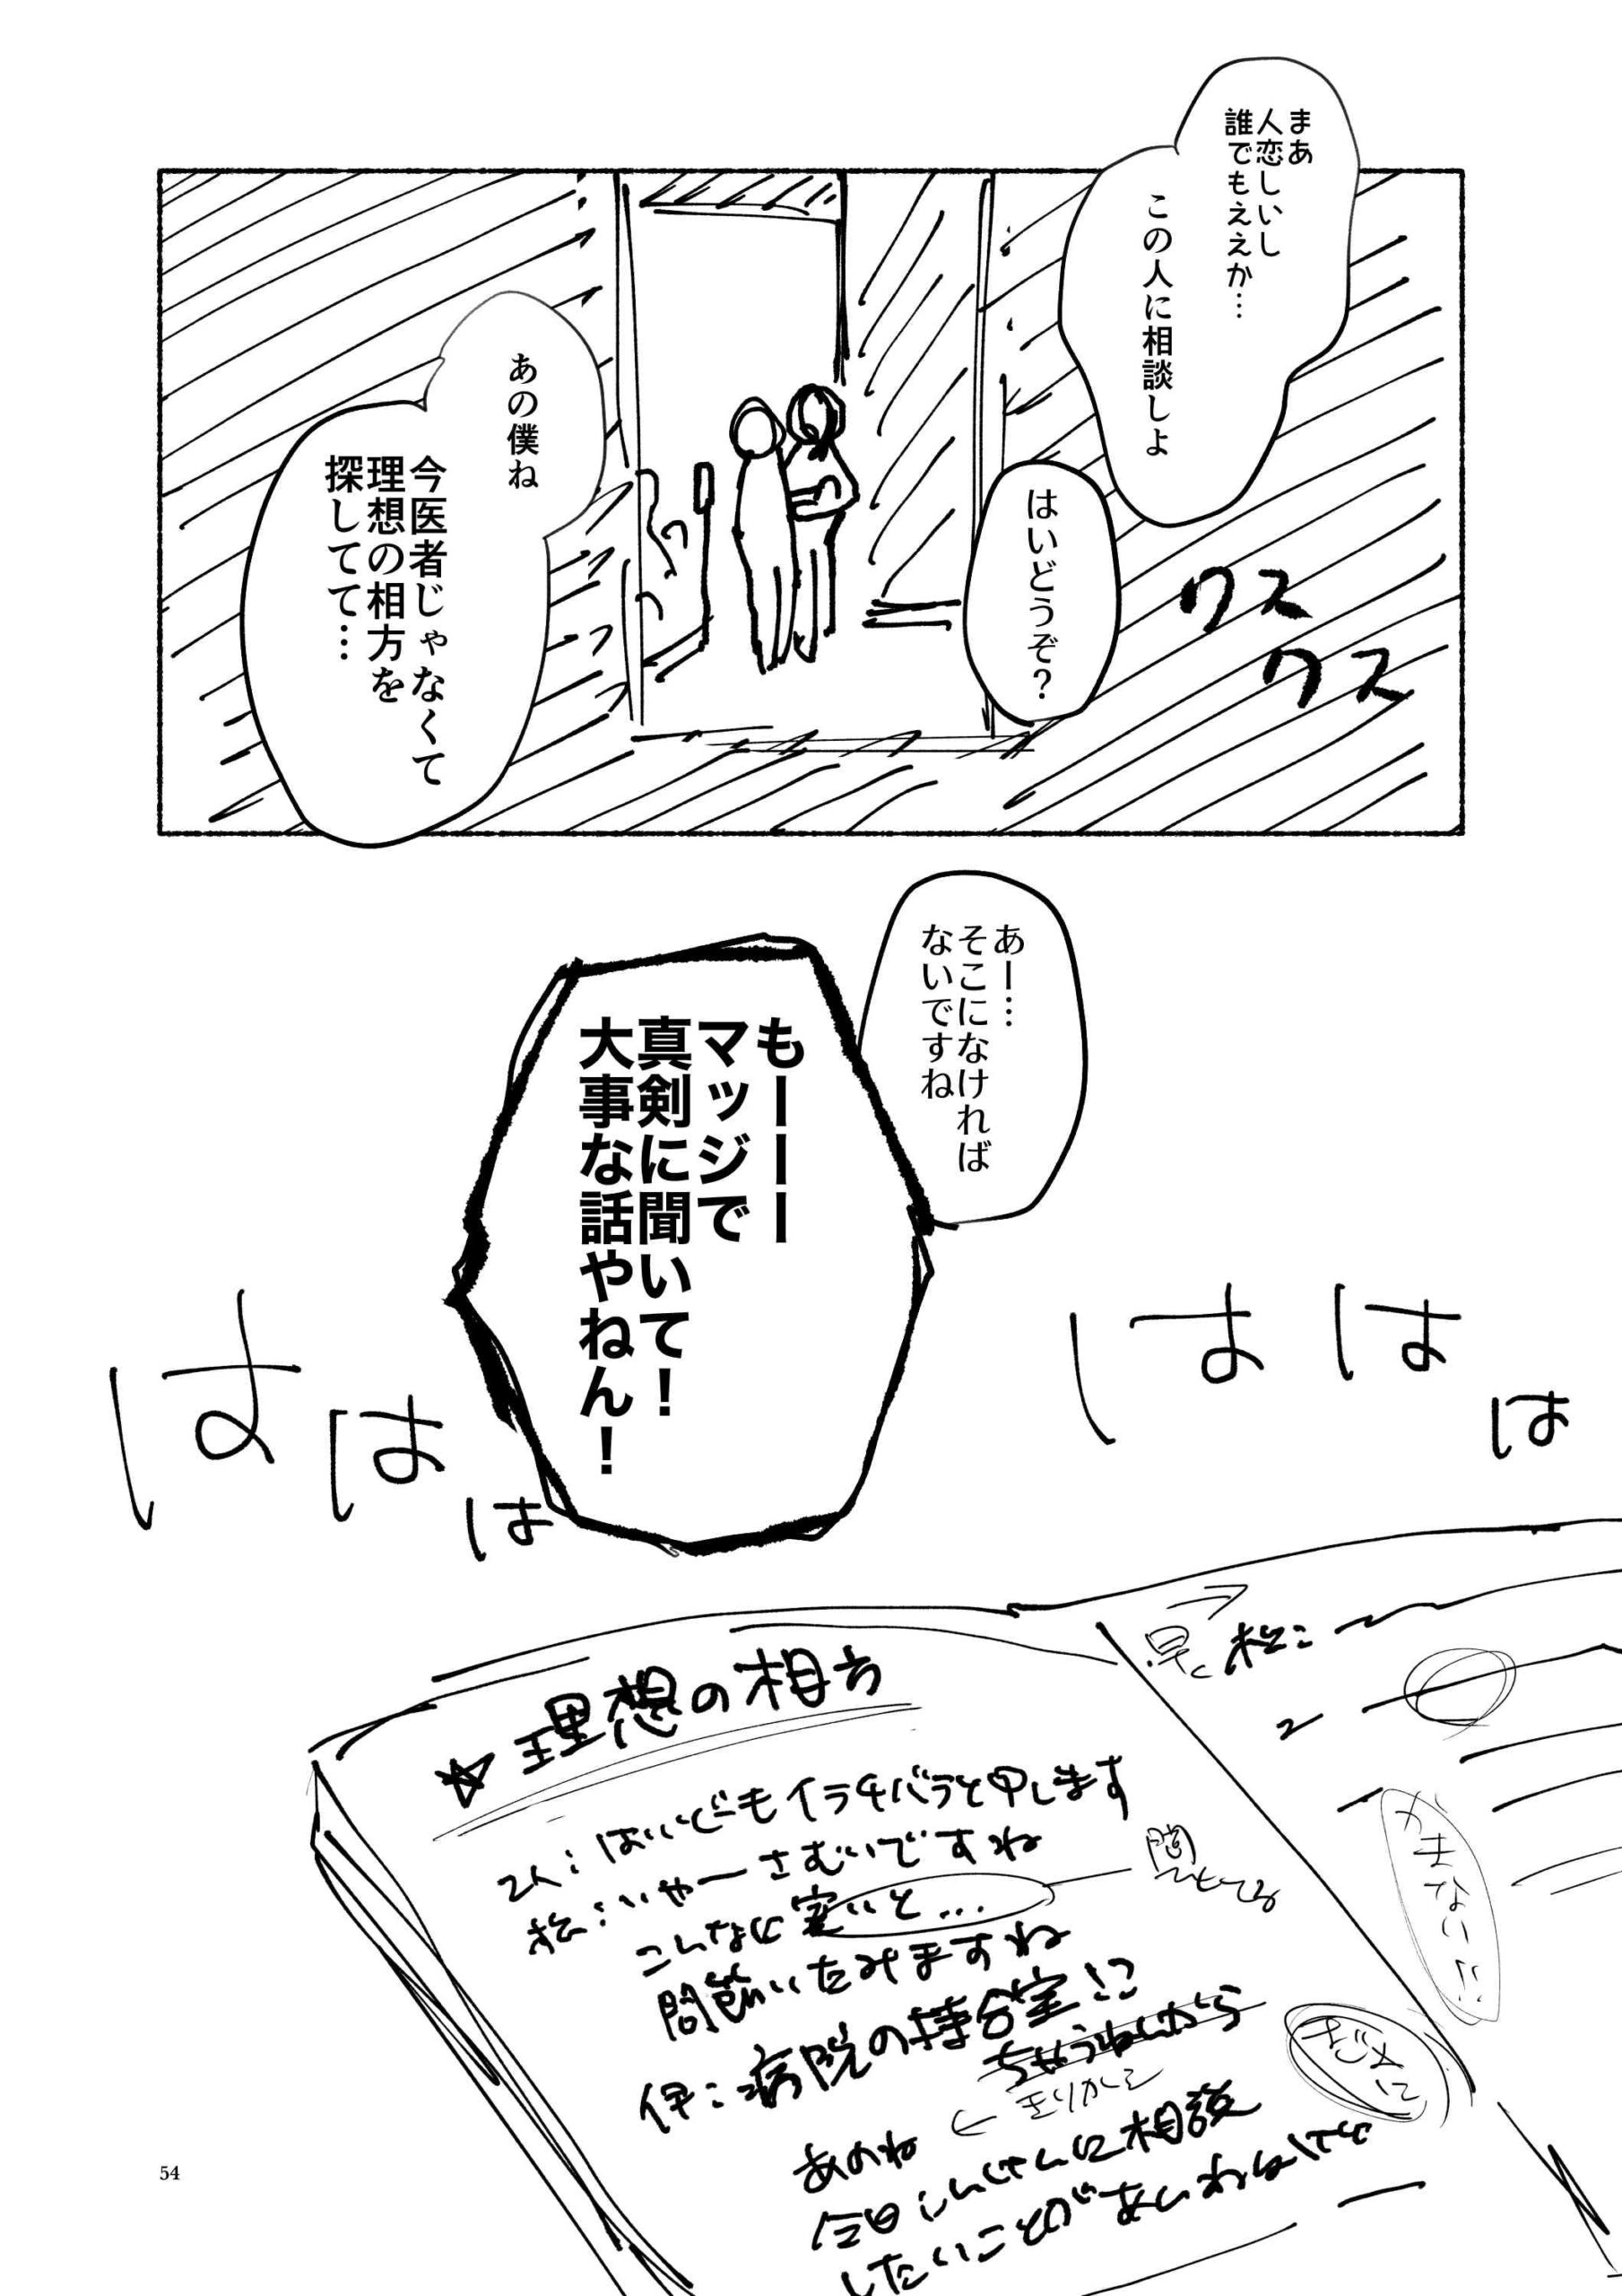 まあ
人恋しいし
誰でもええか…
この人に相談しよ
はいどうぞ？
クス
クス
あの僕ね
今医者じゃなくて
理想の相方を
探してて…
あー…
そこになければ
ないですね
もーーーー
マッジで
真剣に聞いて！
大事な話やねん！
ははは
ははは
☆理想の相方
2人：はいどーもイラチバラと申します
松：いやーさむいですね
こんなに寒いと…
関節いたみますね
伊：病院の待合室!?
ちゃうねんから
きりかえ
あのね
今日しんじさんに相談
したいことがあ
早く
松：
かまない!!
だめに
54